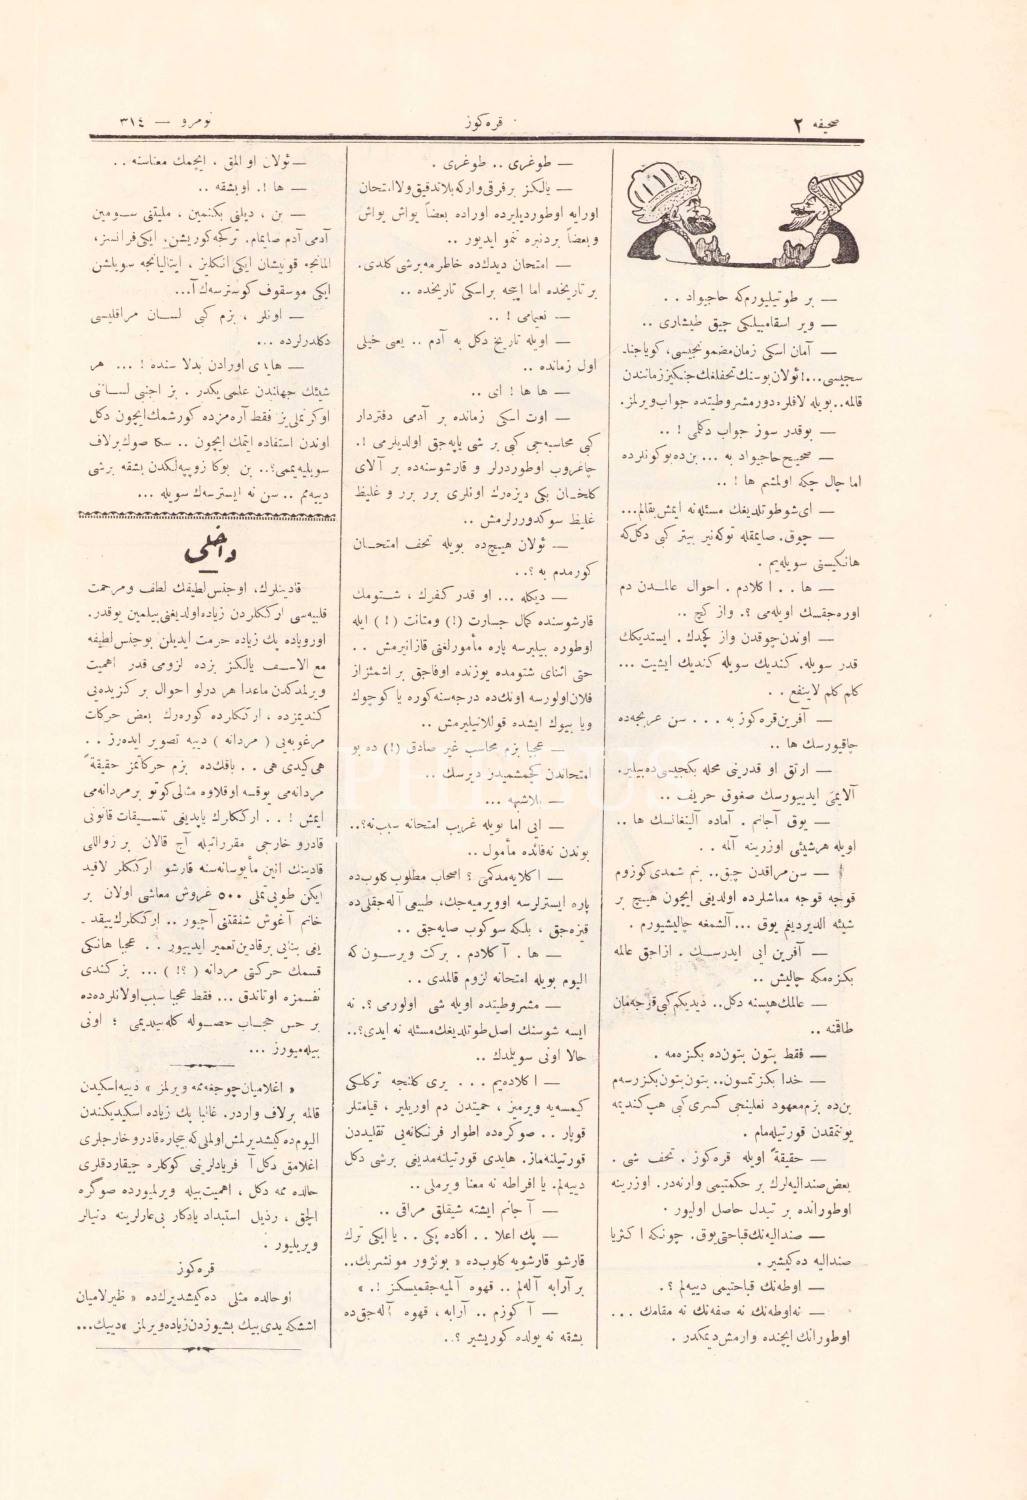 صحیفه ٢
قره‌کوز
نومرو — ٣١٤
— بر طوتیلیورم‌که حاجیواد . .
— ویر اسقامبیلکی چیق طیشاری ..
— آمان اسکی زمان مضمونجیسی، کویا جنا-
قالمه.. بویله لافلره دور مشروطیتده جواب ویرلمز.
— بوقدر سوز جواب دکلمی ! ..
— صحیح حاجیواد به ... بن‌ده بوکونلرده
اما چال چکه اولمشم ها ! ..
— ای شو طوتلدیغك مسئله نه ایمش بقالم...
— چوق. صایمقله توکه‌نیر بیتر کبی دکل‌که
هانکیسنی سویله‌یم .
— ها . . اکلادم . احوال عالمدن دم
اوره‌جقسك اویله‌می ؟. واز کچ ..
— اوندن چوقدن واز کچدك . ایستدیکك
قدر سویله، کندیك سویله کندیك ایشیت ...
کلم کلم لاینفع . .
— آفرین قره‌کوز به . . . سن عربجه‌ده
چاقیورسك ها ..
— ارتق او قدرینی محله بکجیسی‌ده بیلیر.
آلایمی ایدییورسك صغوق حریف ..
— یوق آجانم . آماده آلینغانسك ها ..
اویله هرشیئی اوزرینه آلمه . .
— سن مراقدن چیق.. بنم شمدی کوزوم
قوجه قوجه معاشلرده اولدیغی ایچون هیچ بر
شیئه الدیردیغم یوق ... آلشمغه چالیشیورم .
— آفرین ایی ایدرسك . ازاجق عالمه
بکزه‌مکه چالیش ..
— عالمك هپسنه دکل.. دیدیکم کبی قوجه‌مان
طاقنه ..
— فقط بتون بتون‌ده بکزه‌مه .
— خدا بکزتمسون.. بتون بتون بکزرسه‌م
بن‌ده بزم معهود نعلینجی کسری کبی هپ کندیمه
یونتمقدن قورتیله‌مام .
— حقیقةً اویله قره‌کوز . تحف شی .
بعض صندالیه‌لرك بر حکمتیمی وارنه‌در. اوزرینه
اوطورانده بر تبدل حاصل اولیور .
— صندالیه‌نك قباحتی یوق. چونکه اکثریا
صندالیه ده‌کیشیر .
— اوطه‌نك قباحتیمی دییه‌لم ؟ .
— نه اوطه‌نك نه صفه‌نك نه مقامك ...
اوطورانك ایچنده وارمش دیمکدر .
— طوغری .. طوغری .
— یالکز بر فرقی وارکه بلا تدقیق ولا امتحان
اورایه اوطوردیلیرده اوراده بعضاً یواش یواش
وبعضاً بردنبره نمو ایدیور ..
— امتحان دیدك‌ده خاطرمه برشی کلدی.
بر تاریخده اما ایجه بر اسکی تاریخده ..
— نعیمامی ! ..
— اویله تاریخ دکل به آدم .. یعنی خیلی
اول زمانده ..
— ها ها ! ای ..
— اوت اسکی زمانده بر آدمی دفتردار
کبی محاسبه‌جی کبی بر شی یاپه‌جق اولدیلرمی !.
چاغروب اوطوردرلر و قارشوسنده بر آلای
کلخان بکی دیزه‌رك اونلری برر برر و غلیظ
غلیظ سوکدوررلرمش ..
— ئولان هیچ‌ده بویله تحف امتحان
کورمدم به ؟..
— دیکله ... او قدر کفرك ، شتومك
قارشوسنده کمال جسارت (!) ومتانت (!) ایله
اوطوره بیلیرسه یاره مأمورلغنی قازانیرمش . .
حتی اثنای شتومده یوزنده اوفاجق بر اشمئزاز
فلان اولورسه اونك‌ده درجه‌سنه کوره یا کوچوك
ویا بیوك ایشده قوللانیلیرمش ..
— عجبا بزم محاسب غیر صادق (!) ده بو
امتحاندن کچمشمیدر دیرسك ..
— بلاشبهه ...
— ایی اما بویله غریب امتحانه سبب نه؟..
بوندن نه فائده مأمول ..
— اکلایه‌مدکمی ؟ اصحاب مطلوب کلوب‌ده
پاره ایسترلرسه اوویرمیه‌جك، طبیعی آله‌جقلی‌ده
قیزه‌جق ، بلکه سوکوب صایه‌جق ..
— ها . آکلادم . برکت ویرسون که
الیوم بویله امتحانه لزوم قالمدی . .
— مشروطیتده اویله شی اولورمی ؟. نه
ایسه شوسنك اصل طوتلدیغك مسئله نه ایدی؟..
حالا اونی سویلدك ..
— اکلاده‌یم . . . بری کلنجه ترکلکی
کیمسه‌یه ویرمیز ، حمیتدن دم اوریلیر ، قیامتلر
قوپار . . صوکره‌ده اطوار فرنکانه‌یی تقلیددن
قورتیلنه‌ماز. هایدی قورتیلنه‌مدیغی برشی دکل
دییه‌لم. یا افراطه نه معنا ویرملی ..
— آ جانم ایشته شیقلق مراقی ..
— پك اعلا .. اکاده پکی . . یا ایکی ترك
قارشو قارشویه کلوب‌ده « بونژور مونشربك..
بر آرابه آله‌لم .. قهوه آلمیه‌جقمیسکز !. »
— آ کوزم .. آرابه ، قهوه آله‌جق‌ده
بشقه نه یولده کوریشیر ؟..
— ئولان او المق ، ایچمك معناسنه ..
— ها !. اوبشقه ..
— بن ، دیلنی بکنمین ، ملیتنی سومین
آدمی آدم صایمام. ترکجه کوریشن. ایکی فرانسز،
المانجه قونیشان ایکی انکلیز ، ایتالیانجه سویلشن
ایکی موسقوف کوسترسه‌ك آ...
— اونلر ، بزم کبی لسان مراقلیسی
دکلدرلرده ...
— هایدی اورادن بدلا سنده ! ... هر
شیئك جهاندن علمی یکدر . بز اجنبی لسانی
اوکرنملی‌یز فقط آره‌مزده کورشمك ایچون دکل
اوندن استفاده ایتمك ایچون .. سکا صوك بر لاف
سویلیه‌یممی؟.. بن بوکا زوپپه‌لکدن بشقه برشی
دییه‌مم .. سن نه ایسترسه‌ك سویله ...
داخلی
قادینلرك، او جنس لطیفك لطف ومرحمت
قلبیه‌سی ارککلردن زیاده اولدیغنی بیلمین یوقدر.
اوروپاده پك زیاده حرمت ایدیلن بوجنس لطیفه
مع الاسف یالکز بزده لزومی قدر اهمیت
ویرلمدکدن ماعدا هر درلو احوال بر کزیده‌یی
کندیمزده ، ارککلرده کوره‌رك بعض حرکات
مرغوبه‌یی ( مردانه ) دییه تصویر ایده‌رز . .
هی کیدی هی . . باقك‌ده بزم حرکاتمز حقیقةً
مردانه‌می یوقسه اوقلاوه مثالی کوتو بر مردانه‌می
ایمش ! . . ارککلرك یاپدیغی تنسیقات قانونی
قادرو خارجی مقرراتیله آج قالان بر زواللی
قادینك انین مأیوسانه‌سنه قارشو ارککلر لاقید
ایکن طوبی‌تملی ٥٠٠ غروش معاشی اولان بر
خانم آغوش شفقتنی آچیور .. ارککلرك ییقد-
یغی بنایی بر قادین تعمیر ایدییور . . عجبا هانکی
قسمك حرکتی مردانه ( ؟! ) ... بز کندی
نفسمزه اوتاندق ... فقط عجبا سبب اولانلرده‌ده
بر حس حجاب حصوله کله‌بیلدیمی ؛ اونی
بیله‌میورز ...
« اغلامیان چوجغه ممه ویرلمز » دییه اسکیدن
قالمه بر لاف واردر. غالبا پك زیاده اسکیدیکندن
الیوم ده‌کیشدیرلمش اولملی‌که بیچاره قادرو خارجلری
اغلامق دکل آ فریادلرینی کوکلره چیقاردقلری
حالده ممه دکل ، اهمیت بیله ویرلمیورده صوکره
الچق ، رذیل استبداد یادکار بی‌عارلرینه دنیالر
ویریلیور .
قره‌کوز
اوحالده مثلی ده‌کیشدیرك‌ده « ظیرلامیان
اششکه یدی بیك بشیوزدن زیاده ویرلمز » دییك...